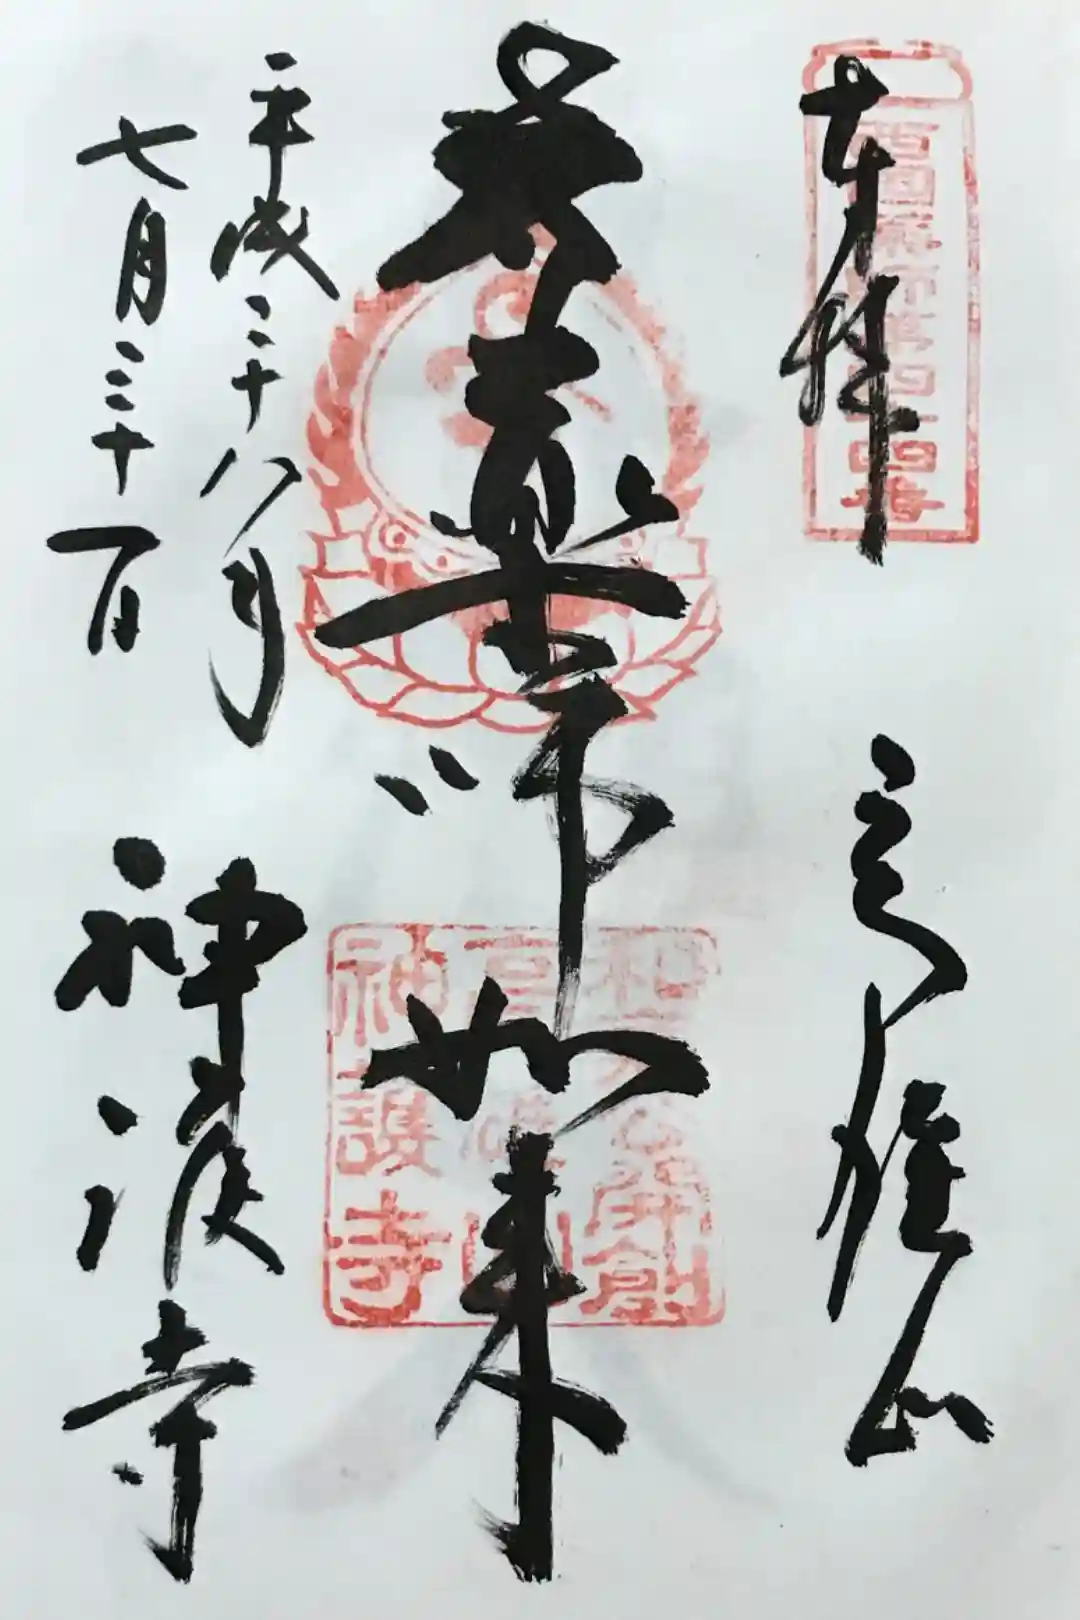 西国薬師第四十四番
奉拝
高雄山
薬師如来
高雄山
神護寺
平成二十八年
七月三十一日
神護寺